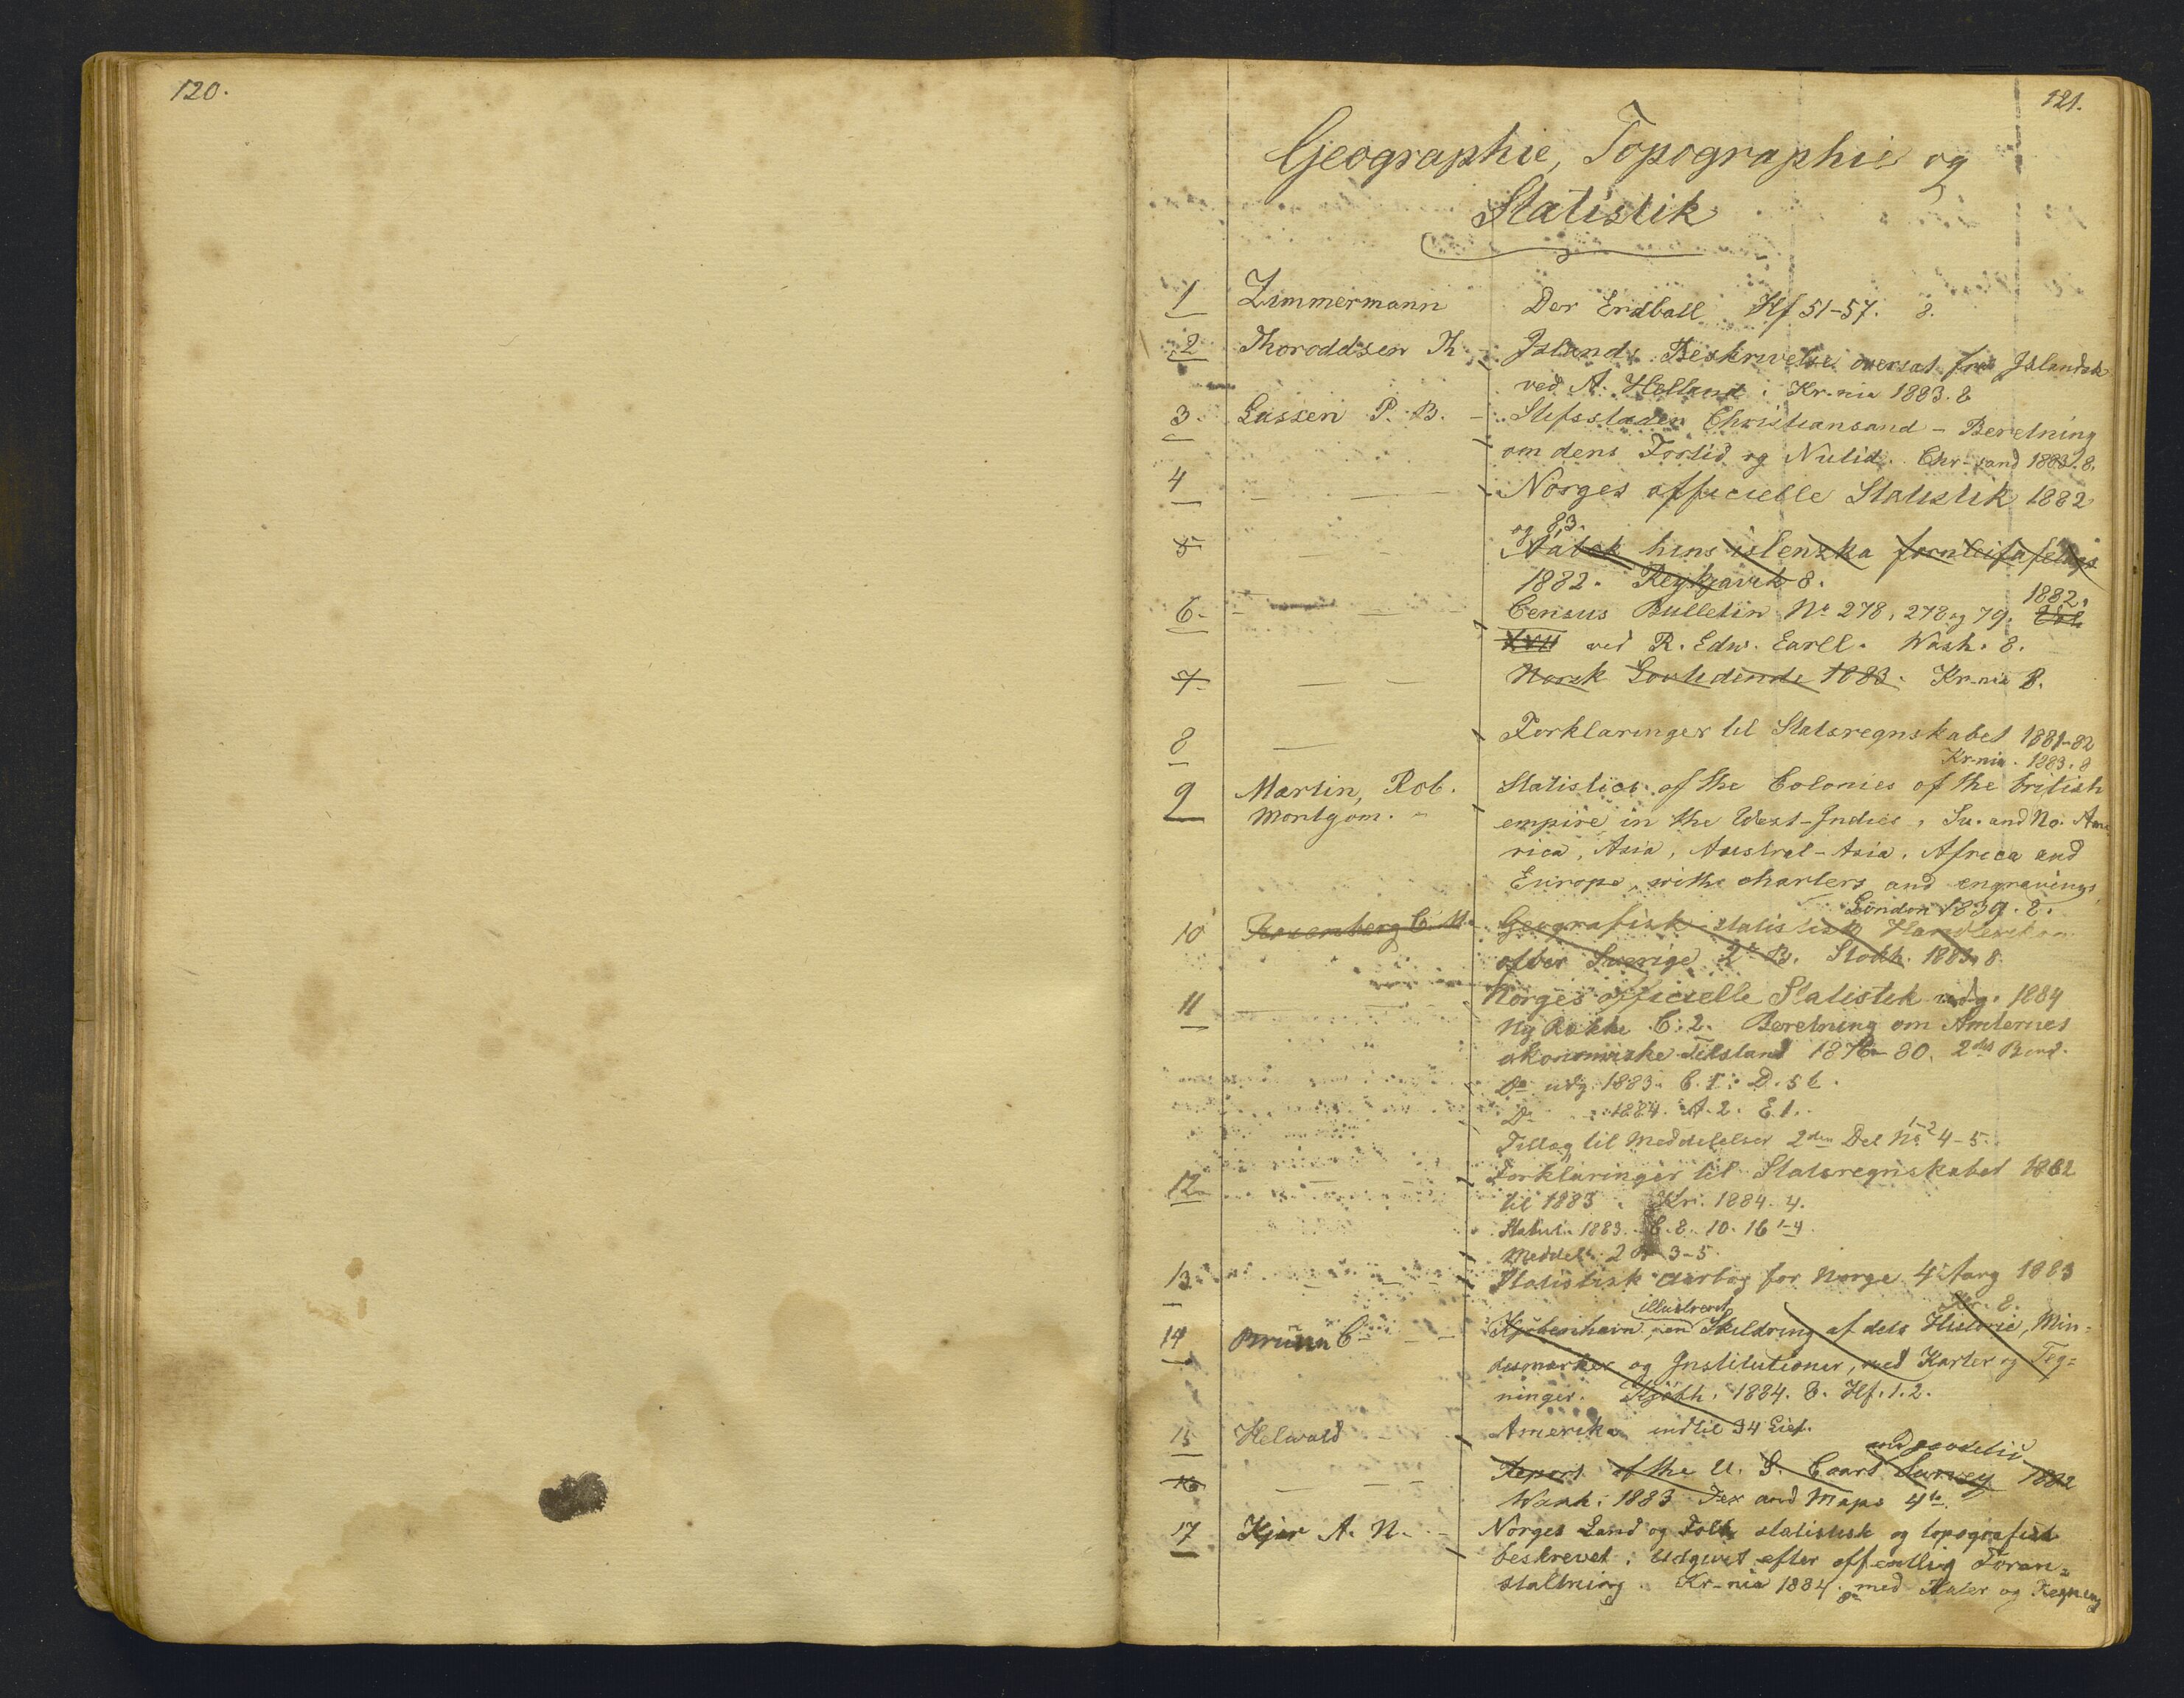 120.
121.
Geographie, Topographie og
Statistik
1 Zimmermann Der Erdball Hf 51-57. 8.
2 Thoroddsen Th - Islands Beskrivelse oversat fra Islandsk
ved A. Helland. Kr.nia 1883. 8
3 Lassen P. B. - Stiftsstaden Christiansand - Beretning
om dens Fortid og Nutid. Chr-sand 1883. 8.
4 — — Norges officielle Statistik 1882
og 83.
5 — — Árbok hins islenzka fornleifafelags
1882. Reykjavik 8.
6. - — Census Bulletin No 278, 278 og 79. Vol 1882.
XVII ved R. Edw. Earll. Wash. 8.
7 — — Norsk Lovtidende 1883. Kr-nia 8.
8 — Forklaringer til Statsregnskabet 1881-82
Kr-nia. 1883. 8
9 Martin, Rob. Statistics of the Colonies of the british
Montgom. - empire in the West-Indies, So. and No. Ame-
rica, Asia, Austral-Asia, Africa and
Europe, with charters and engravings
London 1839. 8.
10 Rosenberg C. M. Geografisk-statistisk Handlexikon
ofver Sverige 2t B. Stockh. 1883 8.
11 — — Norges officielle Statistik udg. 1884
Ny Række C. 2. Beretning om Amternes
økonomiske Tilstand 1876-80. 2det Bind.
Do udg. 1883. C. 1. D. 5 b.
Do - 1884. A. 2. E. 1.
Tillæg til Meddelelser 2den Del No 1-2 4-5.
12 — — Forklaringer til Statsregnskabet 1882
til 1883. Kr. 1884. 4.
Statist. 1883. C. 8. 10. 16 1-4.
Meddel. 2 B 3-5.
13 — — Statistisk Aarbog for Norge 4. Aarg 1883
Kr. 8.
14 Bruun C - — Kjøbenhavn, en illustreret Skildring af dets Historie, Min-
desmærker og Institutioner, med Karter og Teg=
ninger. Kjøbh. 1884. 8. Hf. 1. 2.
15 Helwald - Amerika indtil 34 Lief.
and geodetic
16 — — Report of the U. S. Coast Survey 1882
Wash. 1883 Tex and Maps 4to.
17 Kjær A. N. - Norges Land og Folk statistisk og topografisk
beskrevet. Udgivet efter offentlig Foran=
staltning. Kr-nia 1884. 8o med